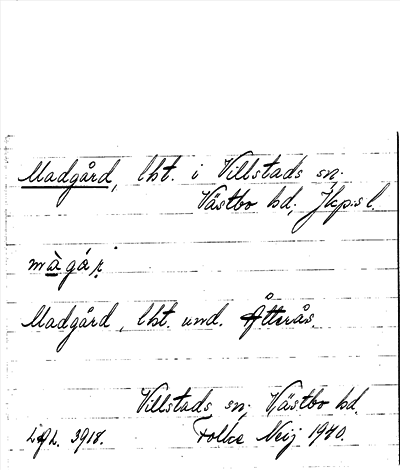 Madgård, lht. i Villstads sn.
Västbo hd, Jkp:s l.
màgár
Madgård, lht. und. Åtterås.
Villstads sn, Västbo hd.
Folke Neij 1940.